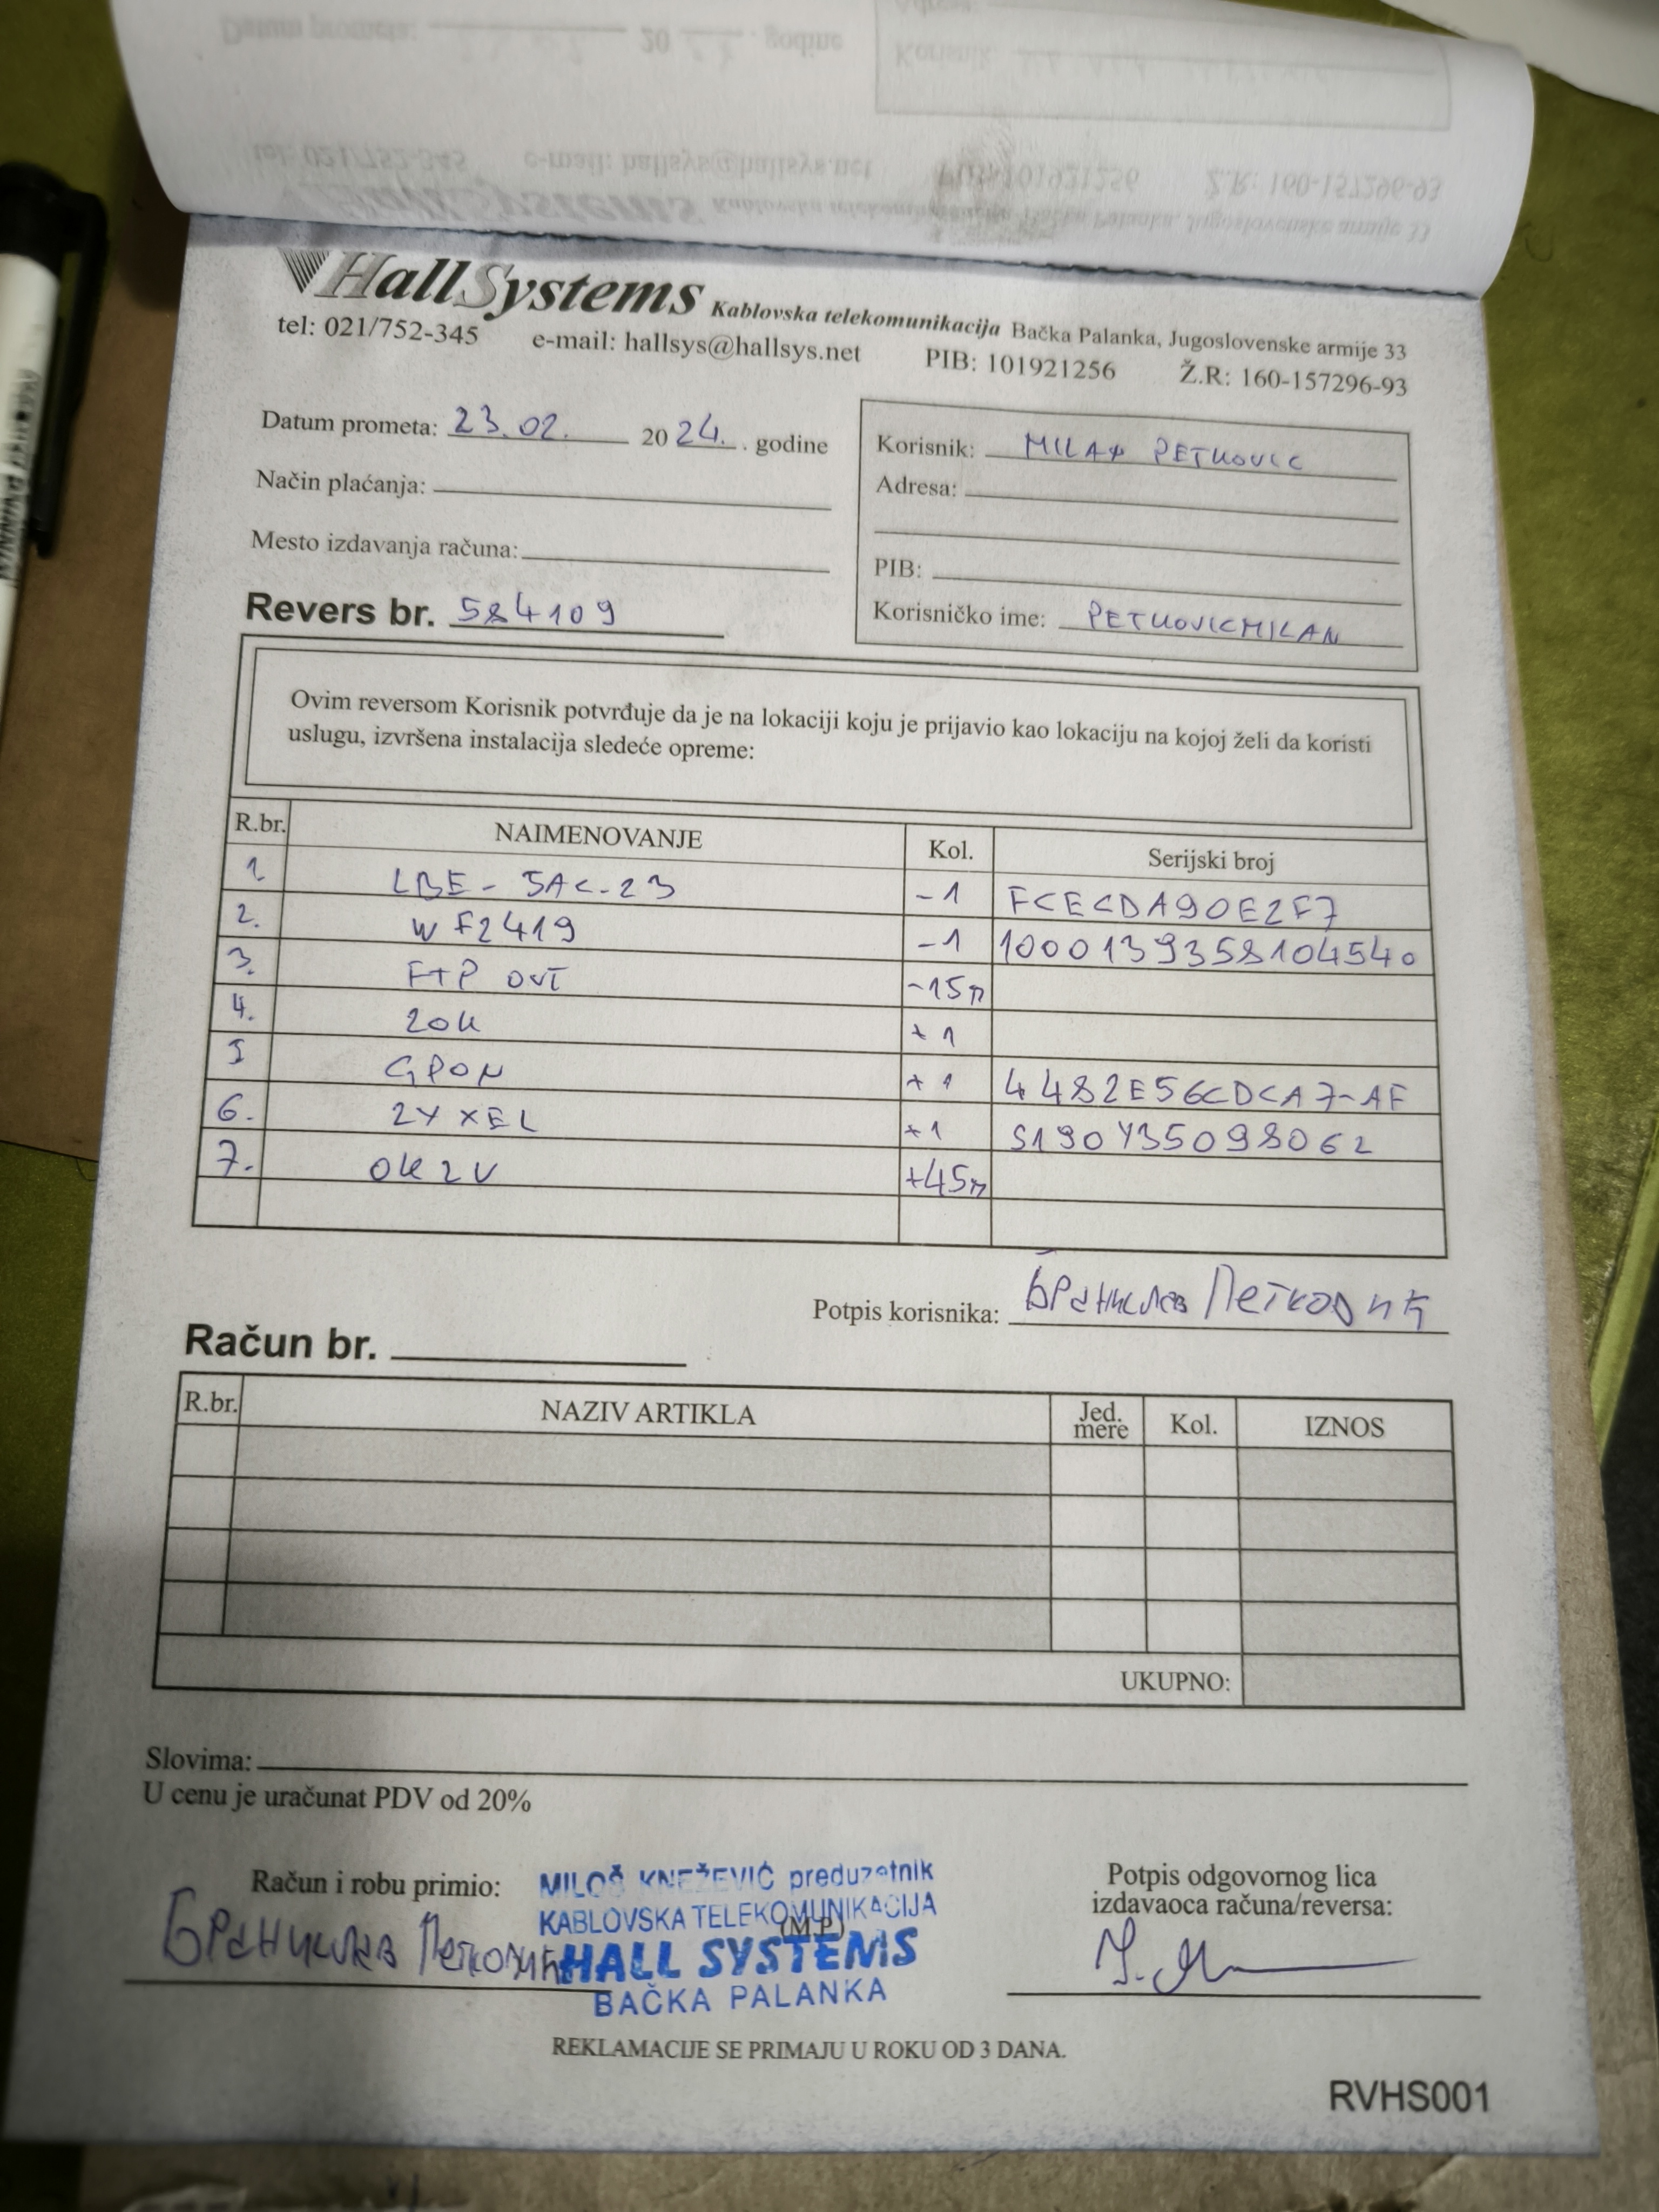 HallSystems Kablovska telekomunikacija Bačka Palanka, Jugoslovenske armije 33
tel: 021/752-345 e-mail: hallsys@hallsys.net PIB: 101921256 Ž.R: 160-157296-93
Datum prometa: 23.02. 2024. . godine
Način plaćanja:
Mesto izdavanja računa:
Revers br. 584109
Korisnik: MILAN PETKOVIC
Adresa:
PIB:
Korisničko ime: PETKOVICMILAN
Ovim reversom Korisnik potvrđuje da je na lokaciji koju je prijavio kao lokaciju na kojoj želi da koristi
uslugu, izvršena instalacija sledeće opreme:
R.br. NAIMENOVANJE Kol. Serijski broj
1. LBE-5AC-23 -1 FCECDA90E2F7
2. WF2419 -1 1000139358104540
3. FTP OUT -15m
4. ZOK +1
5 GPON +1 4482E56CDCA7-AF
6. ZYXEL +1 S190Y35098062
7. OK2V +45m
Potpis korisnika: Бранислав Петковић
Račun br.
R.br. NAZIV ARTIKLA Jed. mere Kol. IZNOS
UKUPNO:
Slovima:
U cenu je uračunat PDV od 20%
Račun i robu primio:
Бранислав Петковић
MILOŠ KNEŽEVIĆ preduzetnik
KABLOVSKA TELEKOMUNIKACIJA
(M.P.)
HALL SYSTEMS
BAČKA PALANKA
Potpis odgovornog lica
izdavaoca računa/reversa:
REKLAMACIJE SE PRIMAJU U ROKU OD 3 DANA.
RVHS001